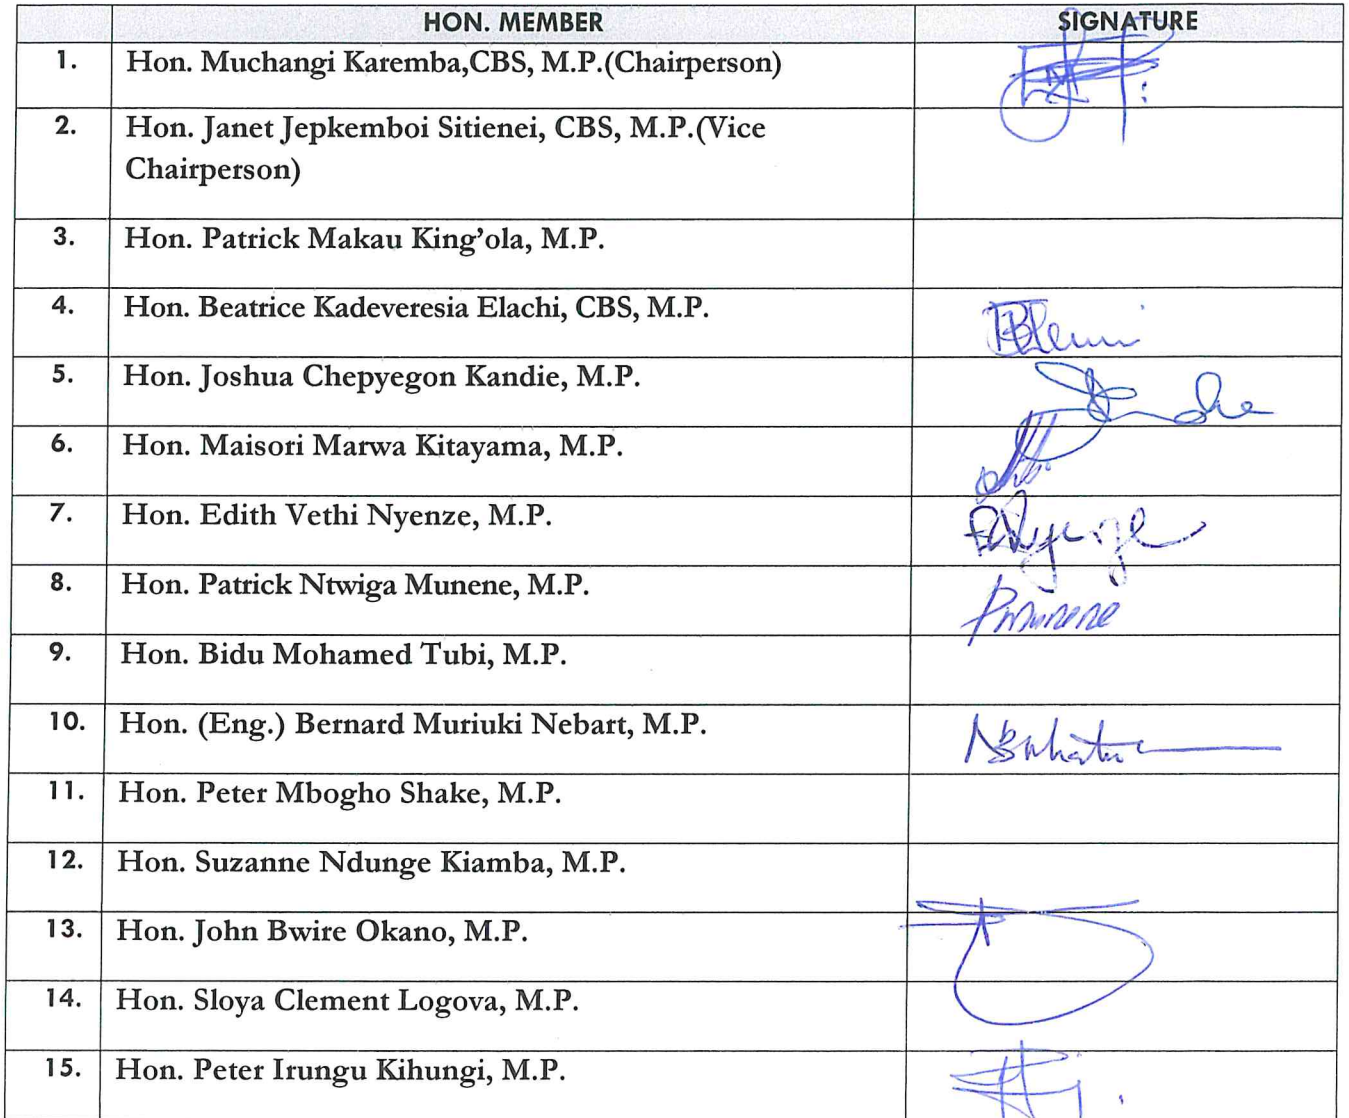 HON. MEMBER SIGNATURE
1. Hon. Muchangi Karemba,CBS, M.P.(Chairperson)
2. Hon. Janet Jepkemboi Sitienei, CBS, M.P.(Vice
Chairperson)
3. Hon. Patrick Makau King'ola, M.P.
4. Hon. Beatrice Kadeveresia Elachi, CBS, M.P.
5. Hon. Joshua Chepyegon Kandie, M.P.
6. Hon. Maisori Marwa Kitayama, M.P.
7. Hon. Edith Vethi Nyenze, M.P.
8. Hon. Patrick Ntwiga Munene, M.P. PMunene
9. Hon. Bidu Mohamed Tubi, M.P.
10. Hon. (Eng.) Bernard Muriuki Nebart, M.P.
11. Hon. Peter Mbogho Shake, M.P.
12. Hon. Suzanne Ndunge Kiamba, M.P.
13. Hon. John Bwire Okano, M.P.
14. Hon. Sloya Clement Logova, M.P.
15. Hon. Peter Irungu Kihungi, M.P.